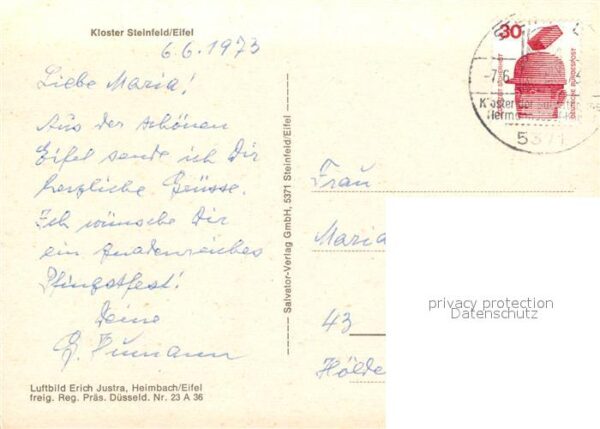 Kloster Steinfeld/Eifel
6.6.1973
Liebe Maria!
Aus der schönen
Eifel sende ich Dir
herzliche Grüsse.
Ich wünsche Dir
ein gnadenreiches
Pfingstfest!
Deine
Luftbild Erich Justra, Heimbach/Eifel
freig. Reg. Präs. Düsseld. Nr. 23 A 36
Salvator-Verlag GmbH, 5371 Steinfeld/Eifel
30
DEUTSCHE BUNDESPOST
-7.6
Kloster der
Herm
5371
Frau
Maria
43
Hölde
privacy protection
Datenschutz